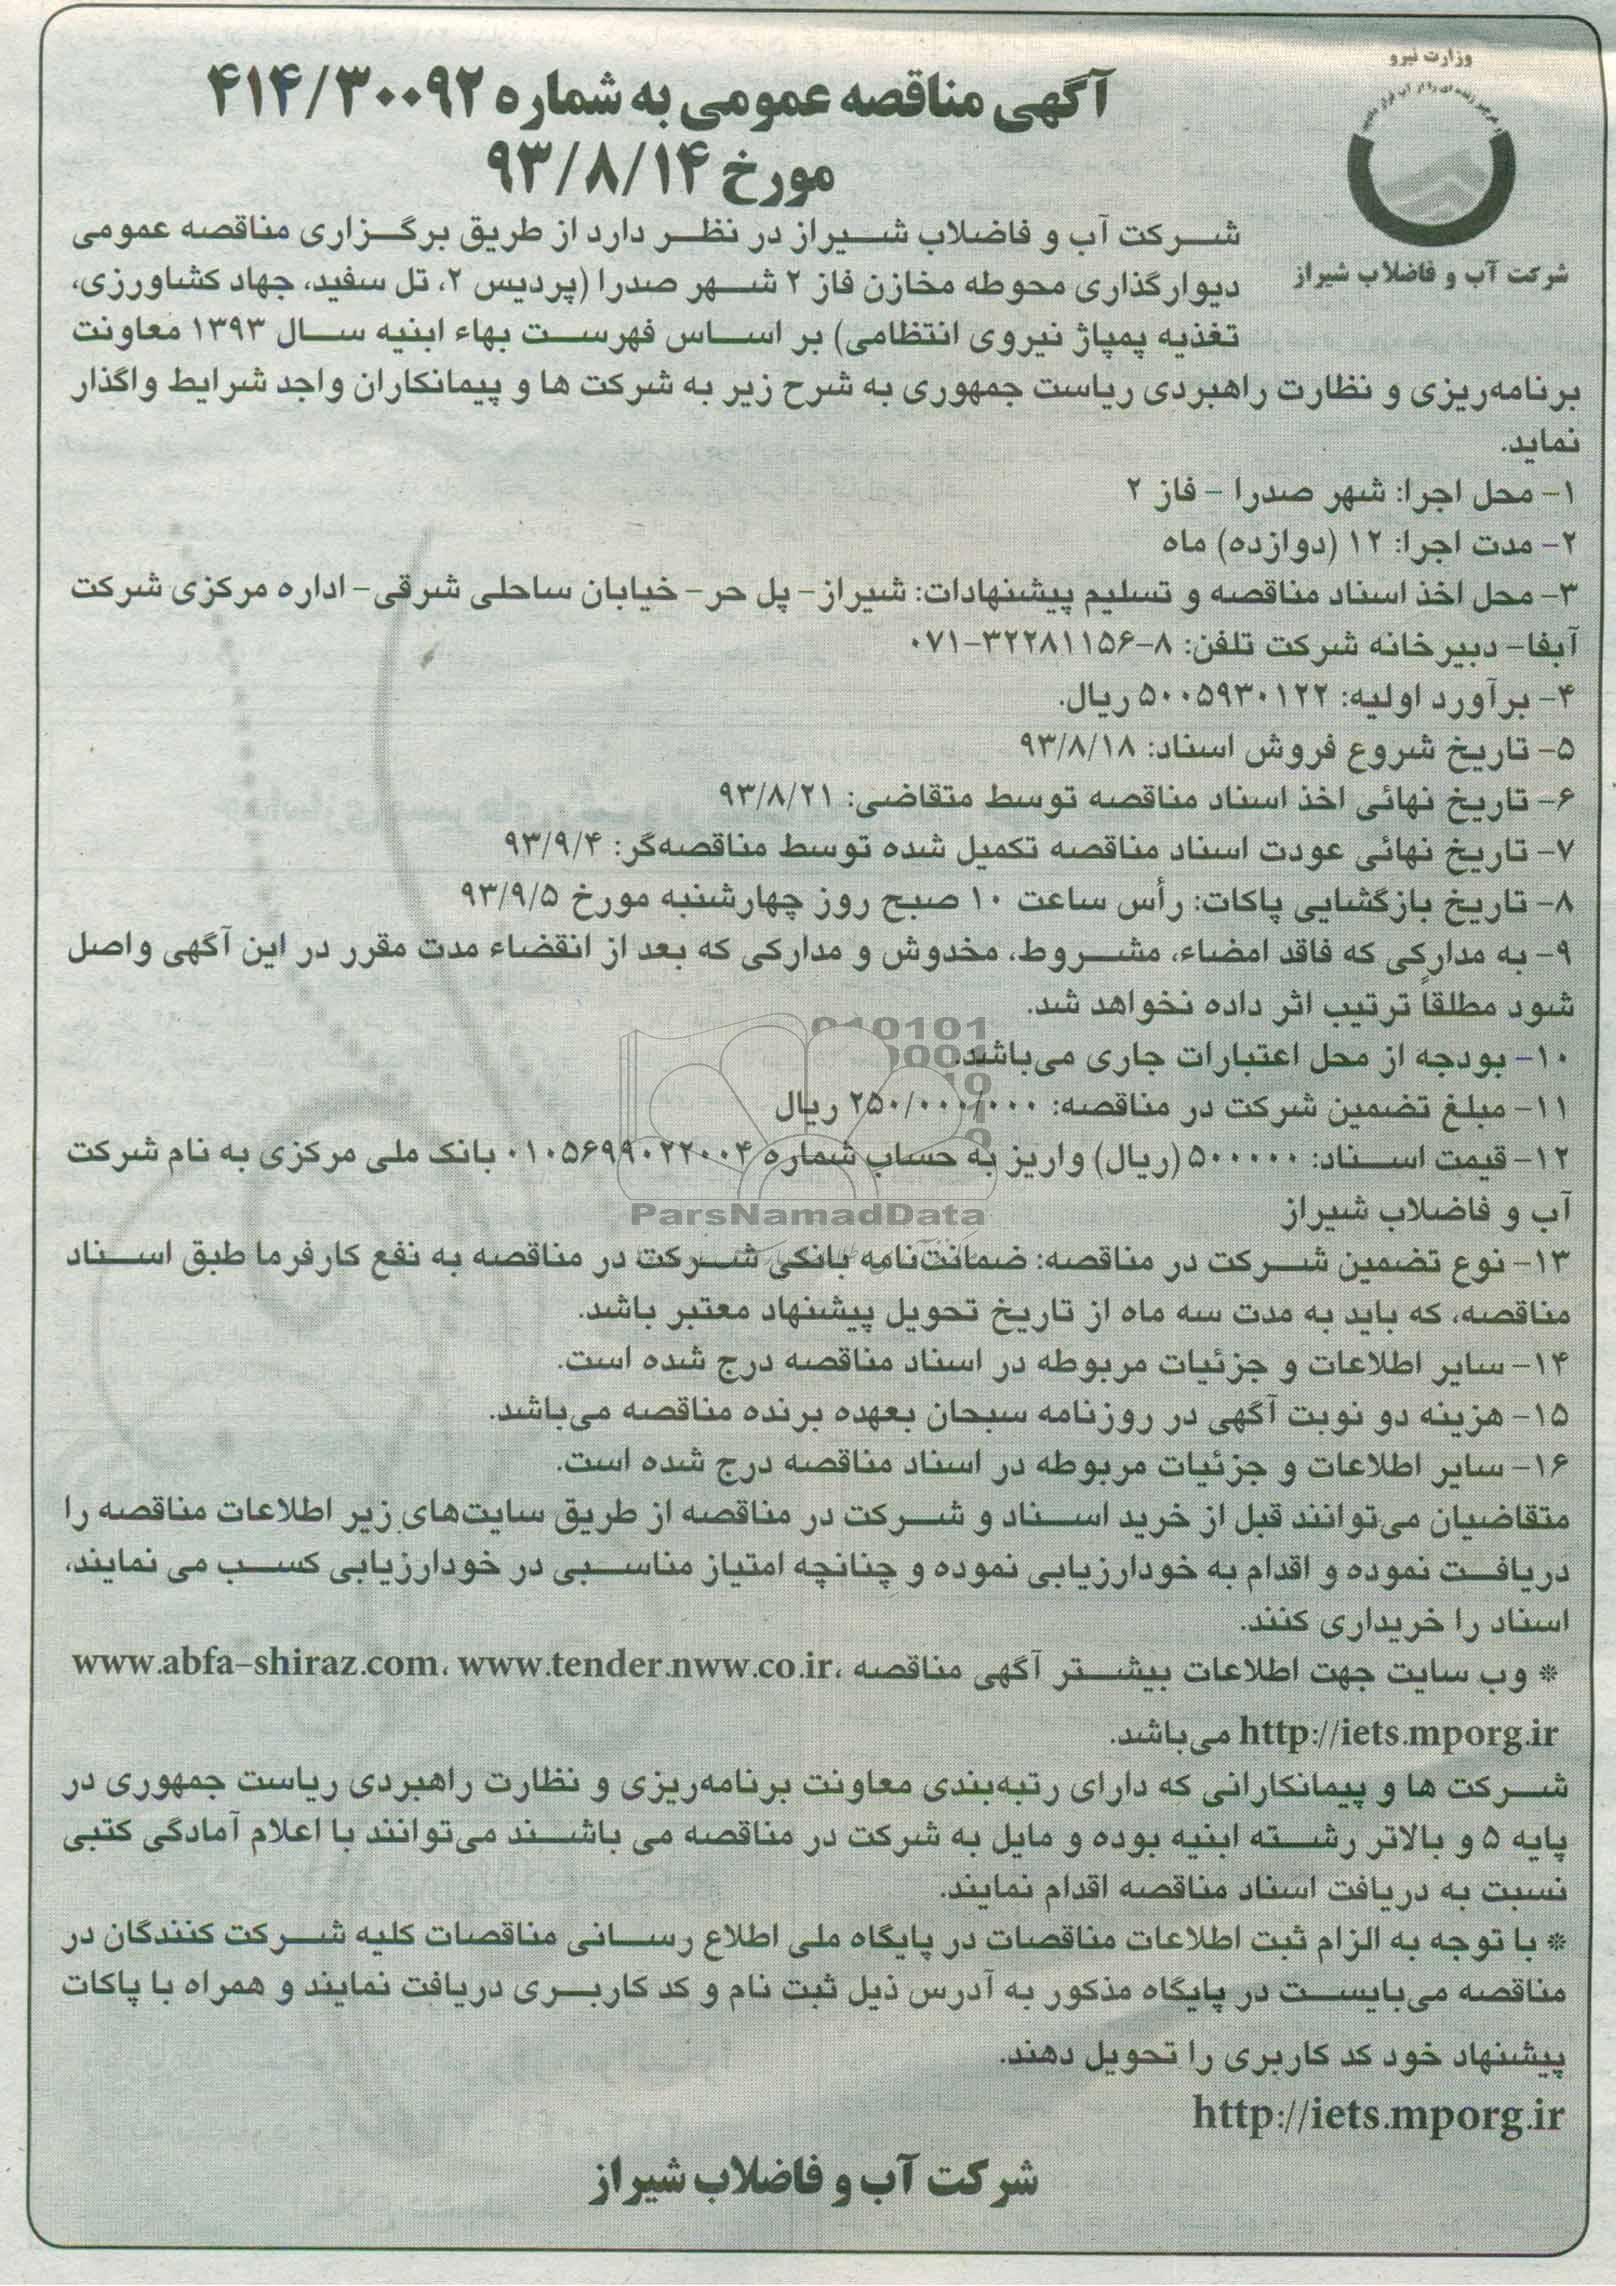 وزارت نیرو
شرکت آب و فاضلاب شیراز
آگهی مناقصه عمومی به شماره ۴۱۴/۳۰۰۹۲
مورخ ۹۳/۸/۱۴
شرکت آب و فاضلاب شیراز در نظر دارد از طریق برگزاری مناقصه عمومی
دیوارگذاری محوطه مخازن فاز ۲ شهر صدرا (پردیس ۲، تل سفید، جهاد کشاورزی،
تغذیه پمپاژ نیروی انتظامی) بر اساس فهرست بهاء ابنیه سال ۱۳۹۳ معاونت
برنامه‌ریزی و نظارت راهبردی ریاست جمهوری به شرح زیر به شرکت ها و پیمانکاران واجد شرایط واگذار
نماید.
۱- محل اجرا: شهر صدرا - فاز ۲
۲- مدت اجرا: ۱۲ (دوازده) ماه
۳- محل اخذ اسناد مناقصه و تسلیم پیشنهادات: شیراز- پل حر- خیابان ساحلی شرقی- اداره مرکزی شرکت
آبفا- دبیرخانه شرکت تلفن: ۸-۳۲۲۸۱۱۵۶-۰۷۱
۴- برآورد اولیه: ۵۰۰۵۹۳۰۱۲۲ ریال.
۵- تاریخ شروع فروش اسناد: ۹۳/۸/۱۸
۶- تاریخ نهائی اخذ اسناد مناقصه توسط متقاضی: ۹۳/۸/۲۱
۷- تاریخ نهائی عودت اسناد مناقصه تکمیل شده توسط مناقصه‌گر: ۹۳/۹/۴
۸- تاریخ بازگشایی پاکات: رأس ساعت ۱۰ صبح روز چهارشنبه مورخ ۹۳/۹/۵
۹- به مدارکی که فاقد امضاء، مشروط، مخدوش و مدارکی که بعد از انقضاء مدت مقرر در این آگهی واصل
شود مطلقاً ترتیب اثر داده نخواهد شد.
۱۰- بودجه از محل اعتبارات جاری می‌باشد.
۱۱- مبلغ تضمین شرکت در مناقصه: ۲۵۰/۰۰۰/۰۰۰ ریال
۱۲- قیمت اسناد: ۵۰۰۰۰۰ (ریال) واریز به حساب شماره ۰۱۰۵۶۹۹۰۲۲۰۰۴ بانک ملی مرکزی به نام شرکت
آب و فاضلاب شیراز
ParsNamadData
۱۳- نوع تضمین شرکت در مناقصه: ضمانت‌نامه بانکی شرکت در مناقصه به نفع کارفرما طبق اسناد
مناقصه، که باید به مدت سه ماه از تاریخ تحویل پیشنهاد معتبر باشد.
۱۴- سایر اطلاعات و جزئیات مربوطه در اسناد مناقصه درج شده است.
۱۵- هزینه دو نوبت آگهی در روزنامه سبحان بعهده برنده مناقصه می‌باشد.
۱۶- سایر اطلاعات و جزئیات مربوطه در اسناد مناقصه درج شده است.
متقاضیان می‌توانند قبل از خرید اسناد و شرکت در مناقصه از طریق سایت‌های زیر اطلاعات مناقصه را
دریافت نموده و اقدام به خودارزیابی نموده و چنانچه امتیاز مناسبی در خودارزیابی کسب می نمایند،
اسناد را خریداری کنند.
* وب سایت جهت اطلاعات بیشتر آگهی مناقصه www.abfa-shiraz.com، www.tender.nww.co.ir،
http://iets.mporg.ir می‌باشد.
شرکت ها و پیمانکارانی که دارای رتبه‌بندی معاونت برنامه‌ریزی و نظارت راهبردی ریاست جمهوری در
پایه ۵ و بالاتر رشته ابنیه بوده و مایل به شرکت در مناقصه می باشند می‌توانند با اعلام آمادگی کتبی
نسبت به دریافت اسناد مناقصه اقدام نمایند.
* با توجه به الزام ثبت اطلاعات مناقصات در پایگاه ملی اطلاع رسانی مناقصات کلیه شرکت کنندگان در
مناقصه می‌بایست در پایگاه مذکور به آدرس ذیل ثبت نام و کد کاربری دریافت نمایند و همراه با پاکات
پیشنهاد خود کد کاربری را تحویل دهند.
http://iets.mporg.ir
شرکت آب و فاضلاب شیراز